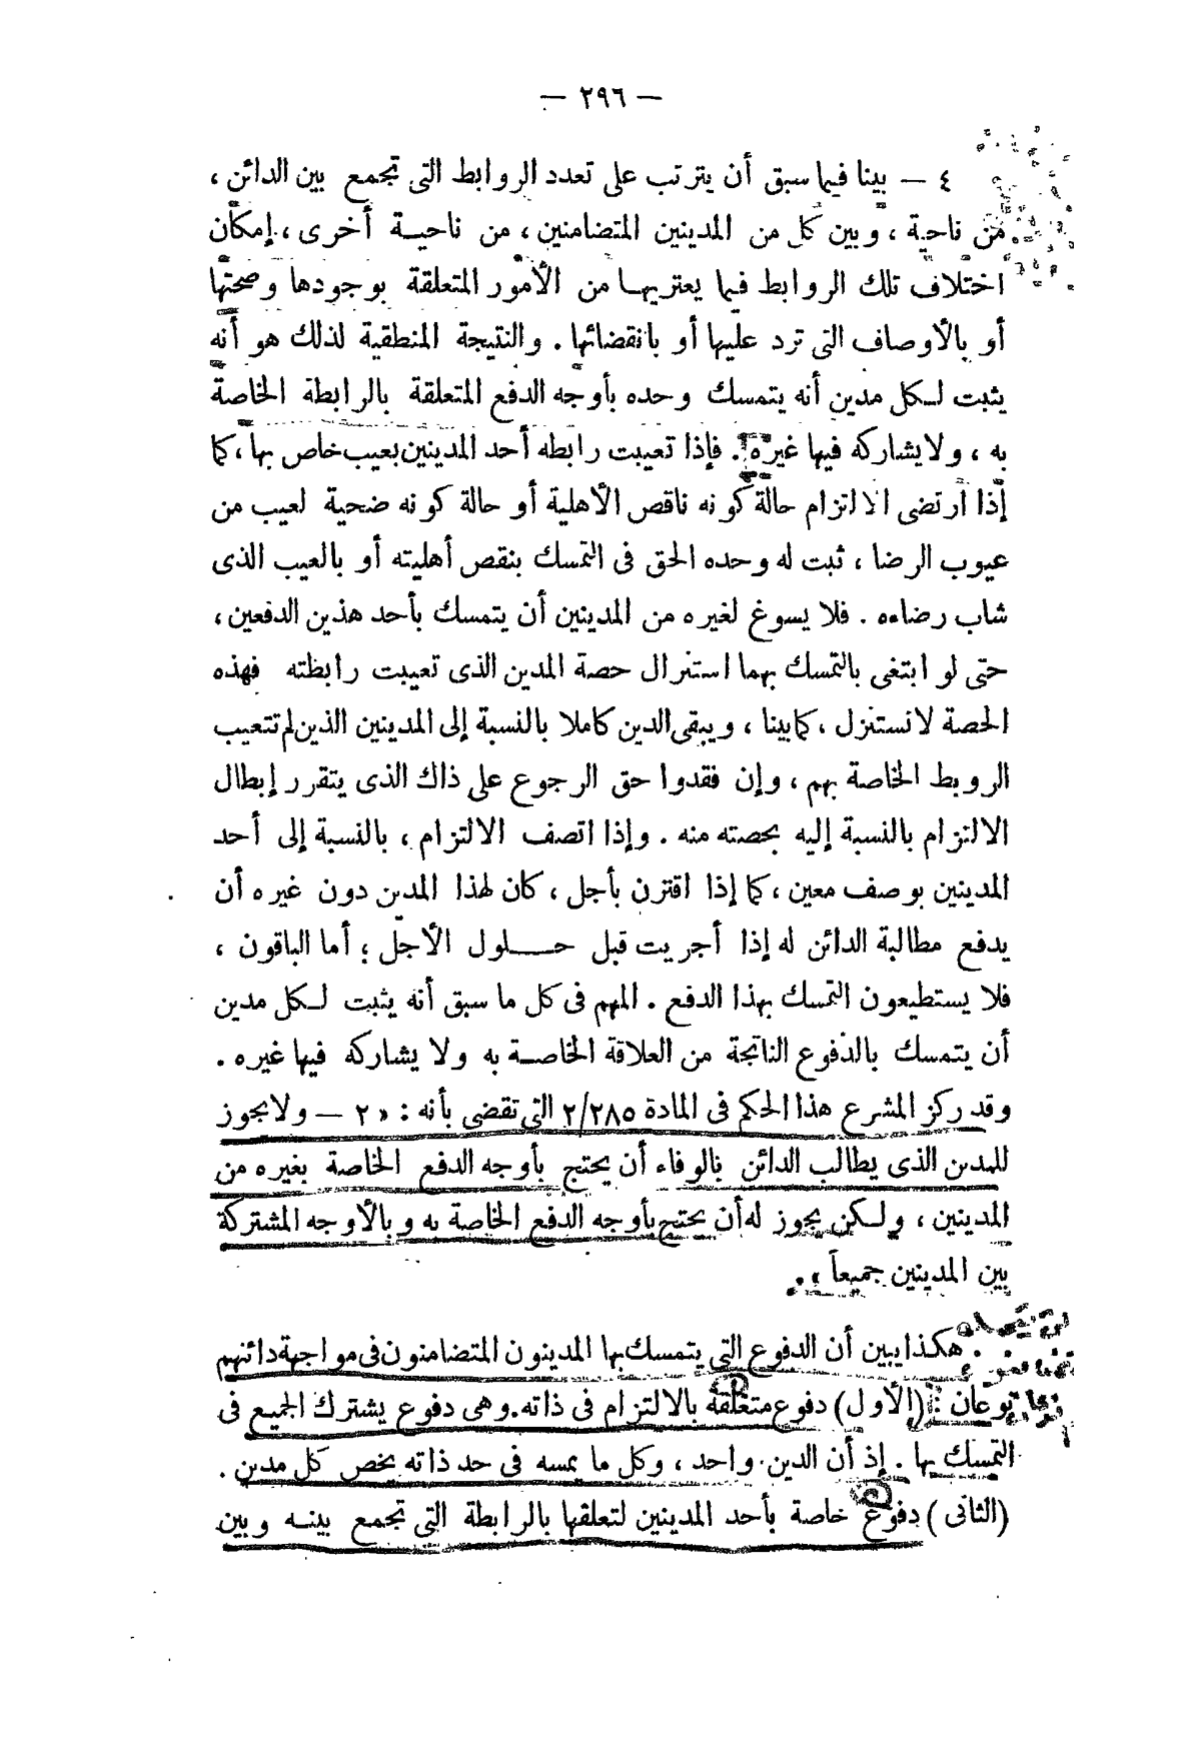 — ٢٩٦ —
٤ — بينا فيما سبق أن يترتب على تعدد الروابط التى تجمع بين الدائن ،
من ناحية ، وبين كل من المدينين المتضامنين ، من ناحيـة أخرى ، إمكان
اختلاف تلك الروابط فيما يعتريهـا من الأمور المتعلقة بوجودها وصحتها
أو بالأوصاف التى ترد عليها أو بانقضائها . والنتيجة المنطقية لذلك هو أنه
يثبت لـكل مدين أنه يتمسك وحده بأوجه الدفع المتعلقة بالرابطة الخاصة
به ، ولا يشاركه فيها غيره . فإذا تعيبت رابطه أحد المدينين بعيب خاص بها ، كما
إذا ارتضى الالتزام حالة كونه ناقص الأهلية أو حالة كونه ضحية لعيب من
عيوب الرضا ، ثبت له وحده الحق فى التمسك بنقص أهليته أو بالعيب الذى
شاب رضاءه . فلا يسوغ لغيره من المدينين أن يتمسك بأحد هذين الدفعين ،
حتى لو ابتغى بالتمسك بهما استنزال حصة المدين الذى تعيبت رابظته فهذه
الحصة لا تستنزل ، كما بينا ، ويبقى الدين كاملا بالنسبة إلى المدينين الذين لم تتعيب
الروبط الخاصة بهم ، وإن فقدوا حق الرجوع على ذاك الذى يتقرر إبطال
الالتزام بالنسبة إليه بحصته منه . وإذا اتصف الالتزام ، بالنسبة إلى أحد
المدينين بوصف معين ، كما إذا اقترن بأجل ، كان لهذا المدين دون غيره أن
يدفع مطالبة الدائن له إذا أجريت قبل حـــلول الأجل ؛ أما الباقون ،
فلا يستطيعون التمسك بهذا الدفع . المهم فى كل ما سبق أنه يثبت لـكل مدين
أن يتمسك بالدفوع الناتجة من العلاقة الخاصـة به ولا يشاركه فيها غيره .
وقد ركز المشرع هذا الحكم فى المادة ٢/٢٨٥ التى تقضى بأنه : « ٢ — ولا يجوز
للمدين الذى يطالب الدائن بالوفاء أن يحتج بأوجه الدفع الخاصة بغيره من
المدينين ، ولـكن يجوز له أن يحتج بأوجه الدفع الخاصة به وبالأوجه المشتركة
بين المدينين جميعاً » .
هكذا يبين أن الدفوع التى يتمسك بها المدينون المتضامنون فى مواجهة دائنهم
نوعان : (الأول) دفوع متعلقة بالالتزام فى ذاته . وهى دفوع يشترك الجميع فى
التمسك بها . إذ أن الدين واحد ، وكل ما يمسه فى حد ذاته يخص كل مدين .
(الثانى) دفوع خاصة بأحد المدينين لتعلقها بالرابطة التى تجمع بينـه وبين